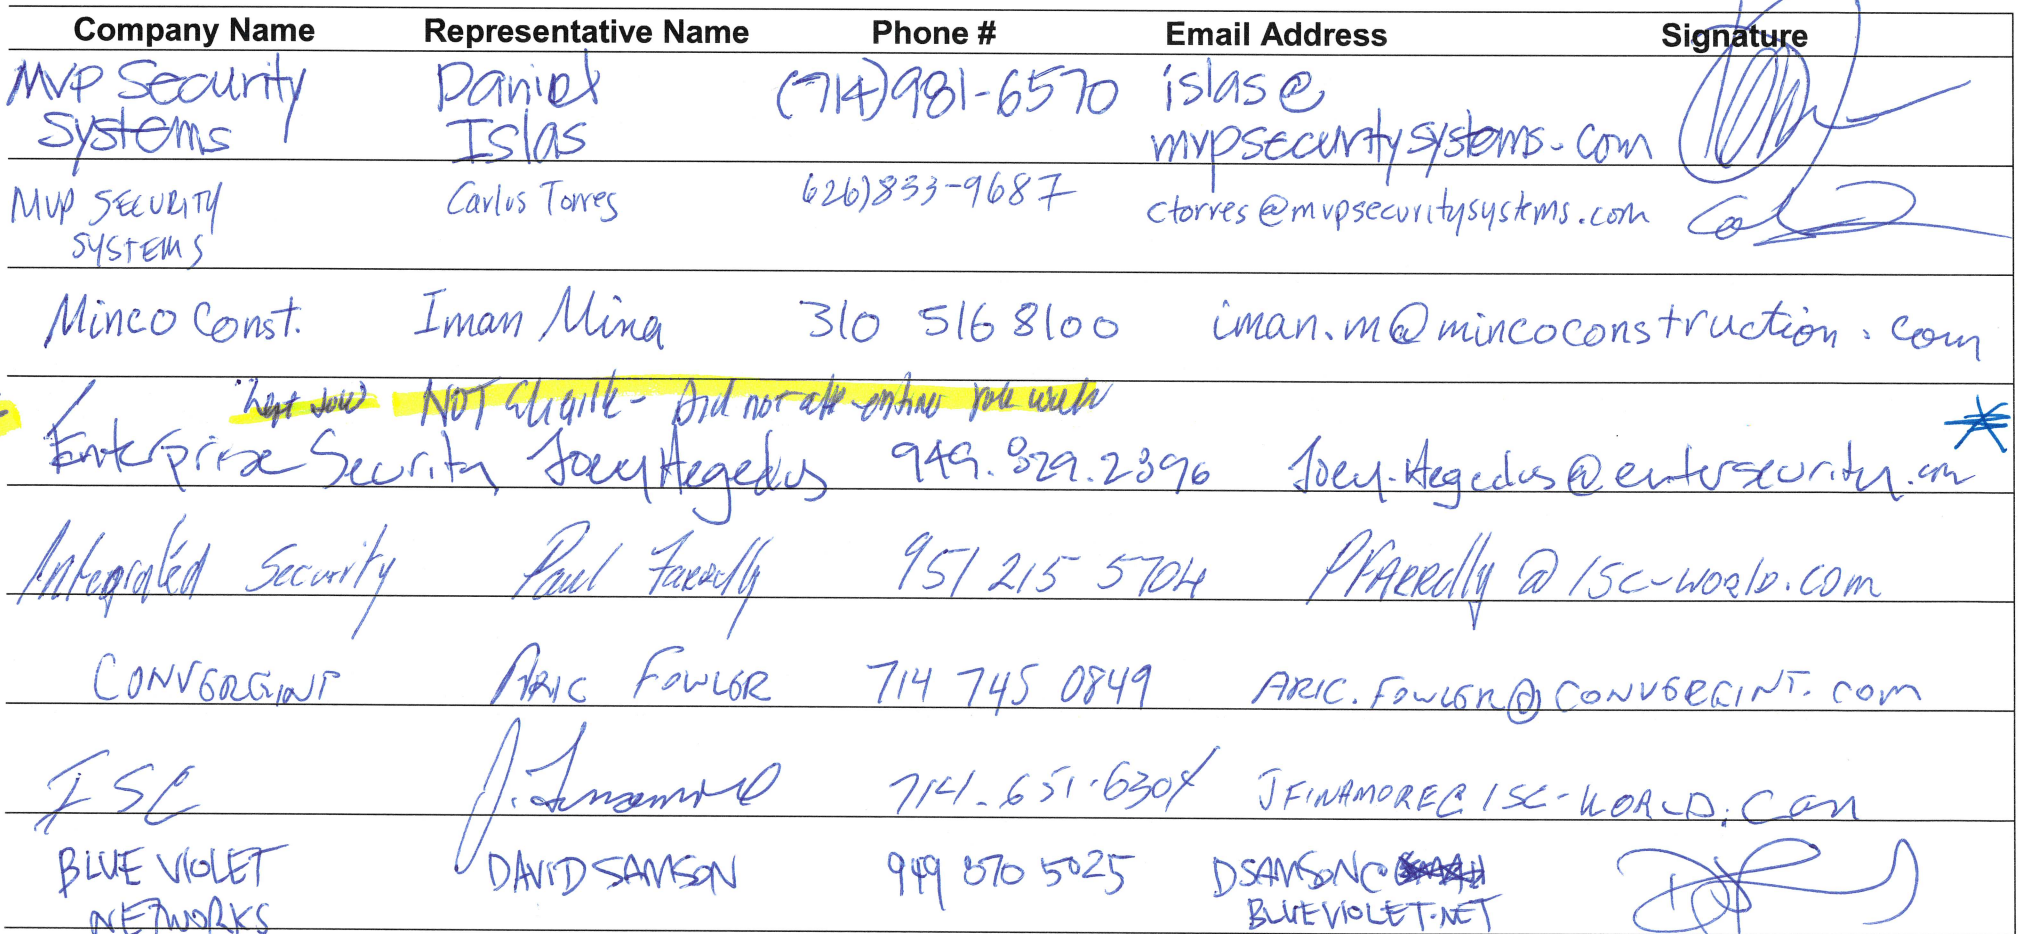 Company Name Representative Name Phone # Email Address Signature
MVP Security Daniel (714)981-6570 islas@
Systems Islas mvpsecuritysystems.com
MVP SECURITY Carlos Torres 626)833-9687 ctorres@mvpsecuritysystems.com
SYSTEMS
Minco Const. Iman Mina 310 516 8100 iman.m@mincoconstruction.com
NOT Eligible - Did not att entire job walk
Enterprise Security Joey Hegedus 949.829.2396 Joey.Hegedus@entersecurity.com
Integrated Security Paul Farrelly 951 215 5704 PFARRelly@ISC-WORLD.COM
CONVERGINT ARIC FOWLER 714 745 0849 ARIC.FOWLER@CONVERGINT.COM
ISC J. Finamore 714.651.6304 JFINAMORE@ISC-WORLD.COM
BLUE VIOLET DAVID SAMSON 949 870 5025 DSAMSON@
NETWORKS BLUEVIOLET.NET